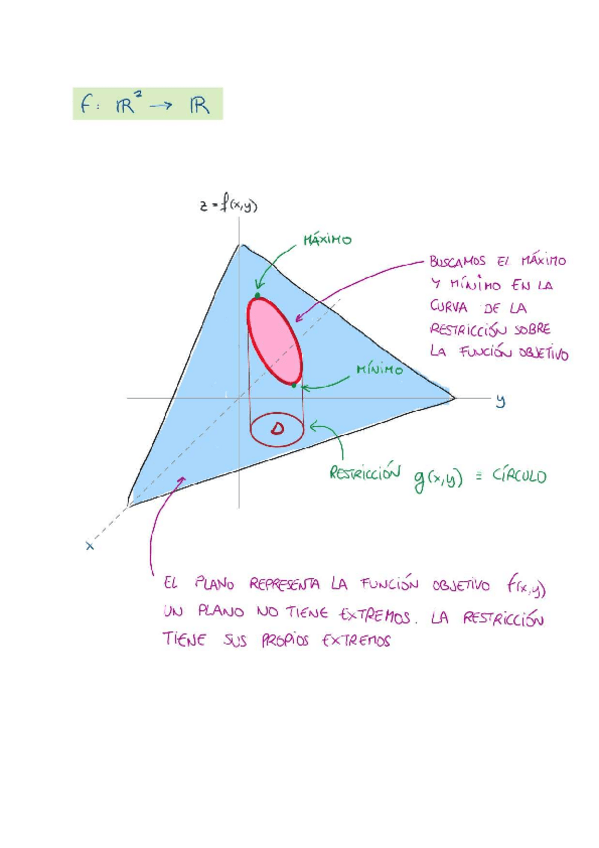 f: ℝ² → ℝ
z = f(x,y)
MÁXIMO
BUSCAMOS EL MÁXIMO
Y MÍNIMO EN LA
CURVA DE LA
RESTRICCIÓN SOBRE
LA FUNCIÓN OBJETIVO
MÍNIMO
y
D
RESTRICCIÓN g(x,y) ≡ CÍRCULO
x
EL PLANO REPRESENTA LA FUNCIÓN OBJETIVO f(x,y)
UN PLANO NO TIENE EXTREMOS. LA RESTRICCIÓN
TIENE SUS PROPIOS EXTREMOS